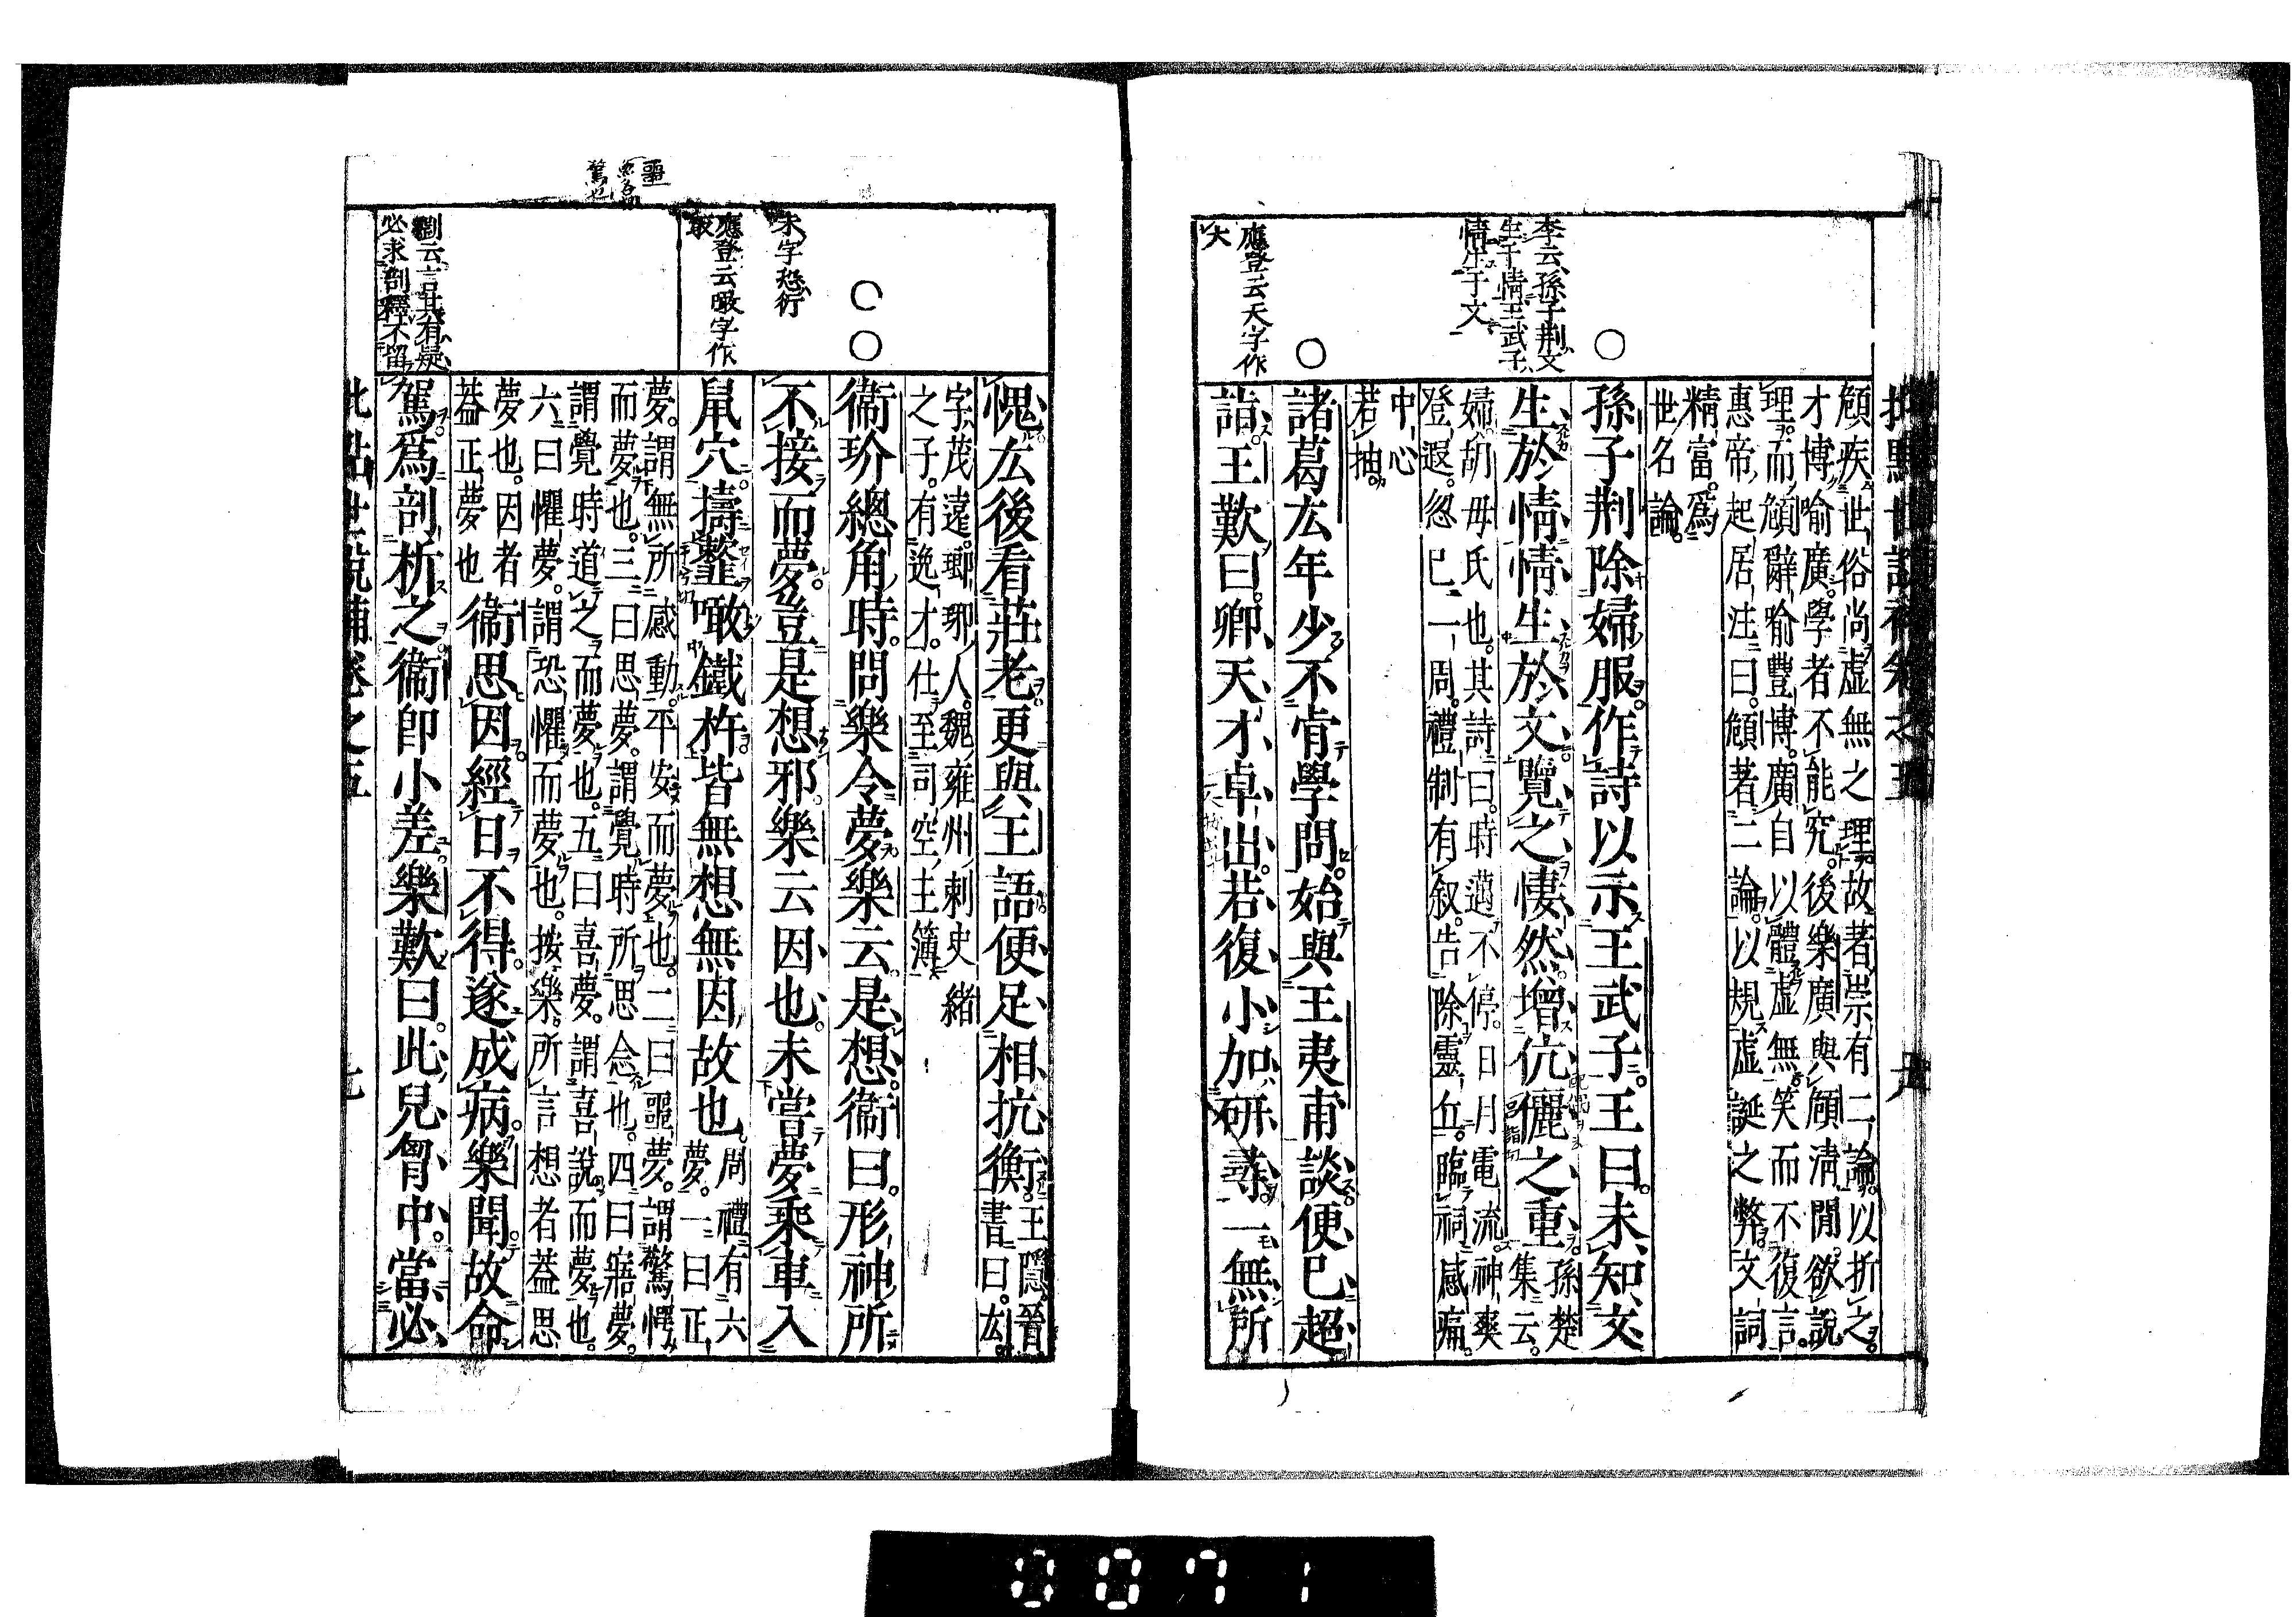 頠疾世俗尚虛無之理故著崇有二論以折之
才博喻廣學者不能究後樂廣與頠清閒欲說
理而頠辭喻豐博廣自以體虛無笑而不復言
惠帝起居注曰頠著二論以規虛誕之弊文詞
精富爲
世名論
孫子荆除婦服作詩以示王武子王曰未知文
生於情情生於文覽之悽然增伉儷之重
孫楚
集云
婦胡毋氏也其詩曰時邁不停日月電流神爽
登遐忽已一周禮制有叙告除靈丘臨祠感痛
中心
若抽
諸葛厷年少不肯學問始與王夷甫談便已超
詣王歎曰卿天才卓出若復小加研尋一無所
李云孫子荆文
生于情王武子
情生于文
應登云天字作
大
愧厷後看莊老更與王語便足相抗衡
王隱晉
書曰厷
字茂遠瑯琊人魏雍州刺史緒
之子有逸才仕至司空主簿
衞玠總角時問樂令夢樂云是想衞曰形神所
不接而夢豈是想邪樂云因也未嘗夢乘車入
鼠穴擣虀噉鐵杵皆無想無因故也
周禮有六
夢一曰正
夢謂無所感動平安而夢也二曰噩夢謂驚愕
而夢也三曰思夢謂覺時所思念也四曰寤夢
謂覺時道之而夢也五曰喜夢謂喜說而夢也
六曰懼夢謂恐懼而夢也按樂所言想者葢思
夢也因者
葢正夢也
衞思因經日不得遂成病樂聞故命
駕爲剖析之衞卽小差樂歎曰此兒胷中當必
未字恐衍
應登云噉字作
噩
驚也
劉云言其有疑
必求剖釋不留
批點世說補卷之五